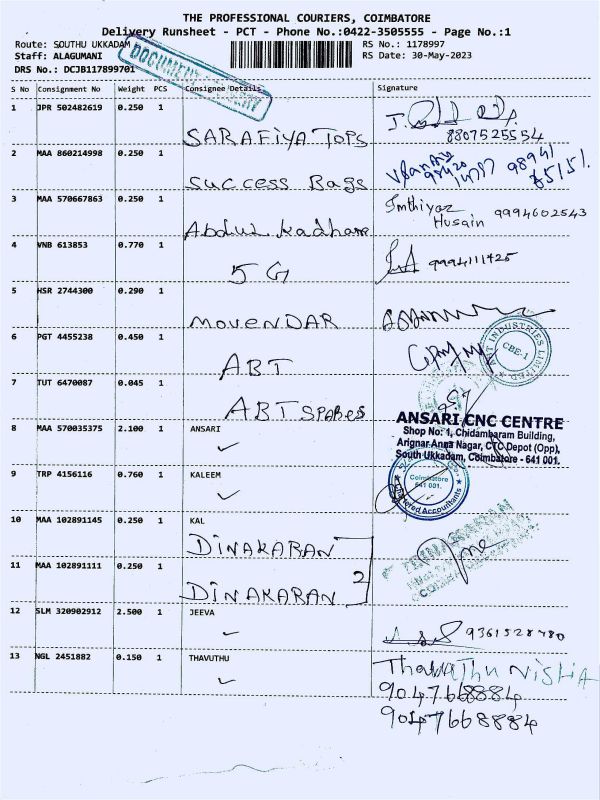 THE PROFESSIONAL COURIERS, COIMBATORE
Delivery Runsheet - PCT - Phone No.:0422-3505555 - Page No.:1
Route: SOUTHU UKKADAM
RS No.: 1178997
Staff: ALAGUMANI
RS Date: 30-May-2023
DRS No.: DCJB117899701
DOCUMENT
S No Consignment No Weight PCS Consignee Details Signature
1 JPR 502482619 0.250 1
SARAFIYA TOPS
8807525554
2 MAA 860214998 0.250 1
Success Bags
98941
3 MAA 570667863 0.250 1
Abdul Kadhar
Imthiyaz
Husain 9994602543
4 VNB 613853 0.770 1
5 G
9994111425
5 HSR 2744300 0.290 1
MOVENDAR
6 PGT 4455238 0.450 1
ABT
ABT INDUSTRIES LIMITED
CBE-1
7 TUT 6470087 0.045 1
ABT SPARES
8 MAA 570035375 2.100 1 ANSARI
ANSARI CNC CENTRE
Shop No: 1, Chidambaram Building,
Arignar Anna Nagar, CTC Depot (Opp),
South Ukkadam, Coimbatore - 641 001.
9 TRP 4156116 0.760 1 KALEEM
Coimbatore
641 001.
Chartered Accountants
10 MAA 102891145 0.250 1 KAL
DINAKARAN
11 MAA 102891111 0.250 1
DINAKARAN
2
12 SLM 320902912 2.500 1 JEEVA
9361528780
13 NGL 2451882 0.150 1 THAVUTHU
Thavuthu Nisha
9047668884
9047668884